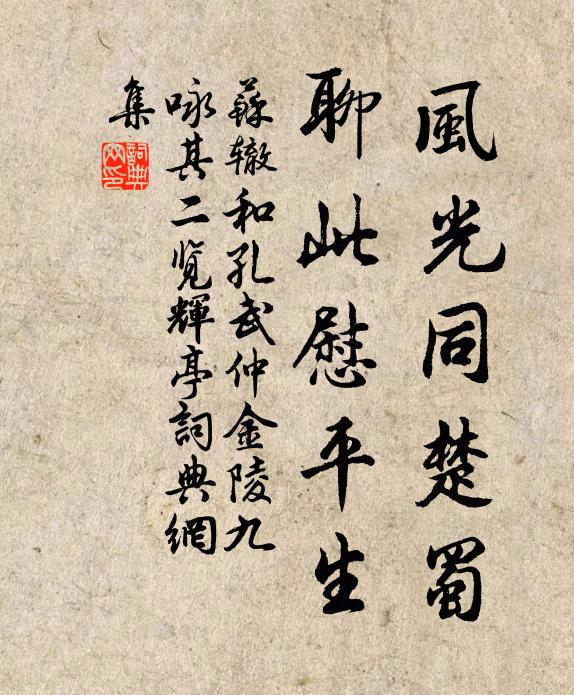 風光同楚蜀
聊此慰平生
蘇辙和孔武仲金陵九
咏其二览輝亭詞典網
集
詞典网印